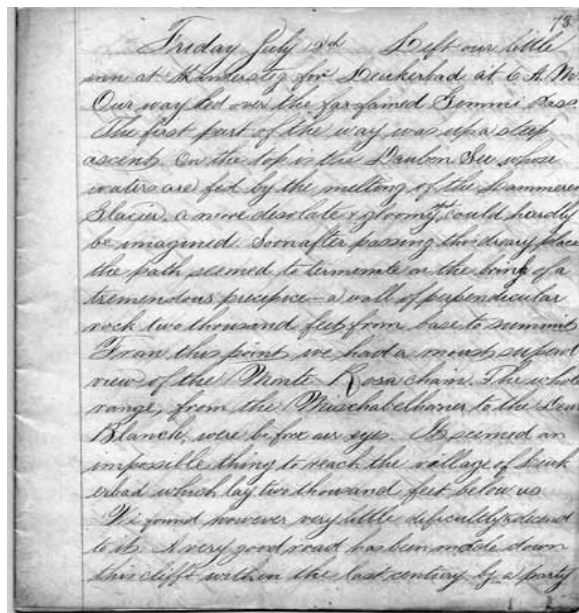 73
Friday July 12d Left our little
inn at Kandersteg for Leukerbad at 6 A.M.
Our way led over the far famed Gemmi Pass
The first part of the way was up a steep
ascent. On the top is the Dauben See whose
waters are fed by the melting of the Lammeren
Glacier. a more desolate & gloomy could hardly
be imagined. Soon after passing this dreary place
the path seemed to terminate on the brink of a
tremendous precepice – a wall of perpendicular
rock two thousand feet from base to summit
From this point we had a most superb
view of the Monte Rosa chain. The whole
range, from the Mischabelhorner to the Deut
Blanch, were before our eyes. It seemed an
impossible thing to reach the village of Leuk
erbad which lay two thousand feet below us
We found however very little dificulty descend
to it. A very good road has been made down
this clifft within the last century by a party